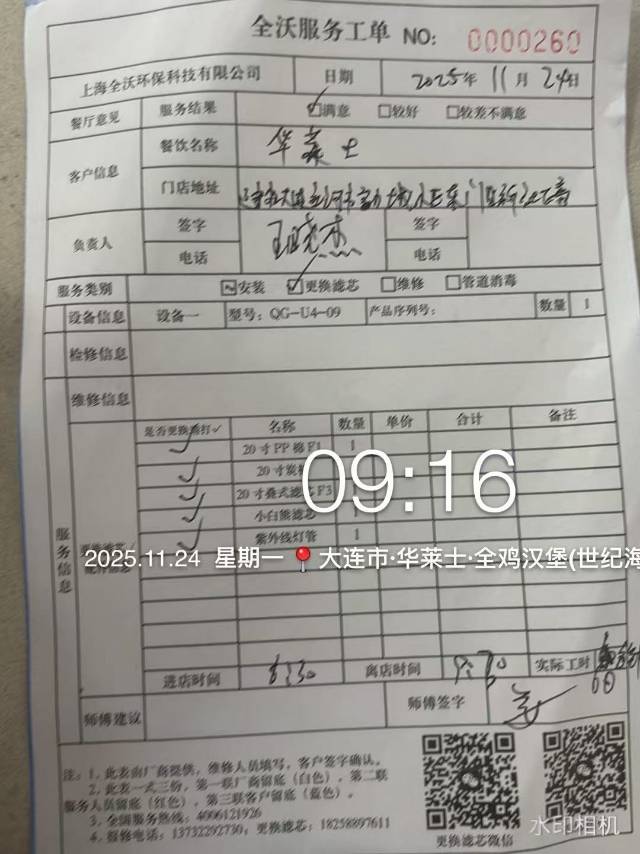 全沃服务工单 NO: 0000260
上海全沃环保科技有限公司 日期 2025年 11月 24日
餐厅意见 服务结果 ☑满意 □较好 □较差不满意
客户信息 餐饮名称 华莱士
门店地址
负责人 签字 签字
电话 电话
服务类别 安装 ☑更换滤芯 □维修 □管道消毒
设备信息 设备一 型号: QG-U4-09 产品序列号: 数量 1
检修信息
维修信息
服务信息
是否更换请打✓ 名称 数量 单价 合计 备注
✓ 20寸PP棉F1 1
✓ 20寸炭
✓ 20寸叠式滤芯F3
✓ 小白熊滤芯
✓ 紫外线灯管 1
09:16
2025.11.24 星期一 大连市·华莱士·全鸡汉堡(世纪海
进店时间 8:30 离店时间 9:30 实际工时 60
师傅建议 师傅签字
注: 1、此表由厂商提供, 维修人员填写, 客户签字确认。
2、此表一式三份, 第一联厂商留底(白色), 第二联
服务人员留底(红色), 第三联客户留底(蓝色)。
3、全国服务热线: 4006121926
4、报修电话: 13732292730; 更换滤芯: 18258897611
更换滤芯微信
水印相机